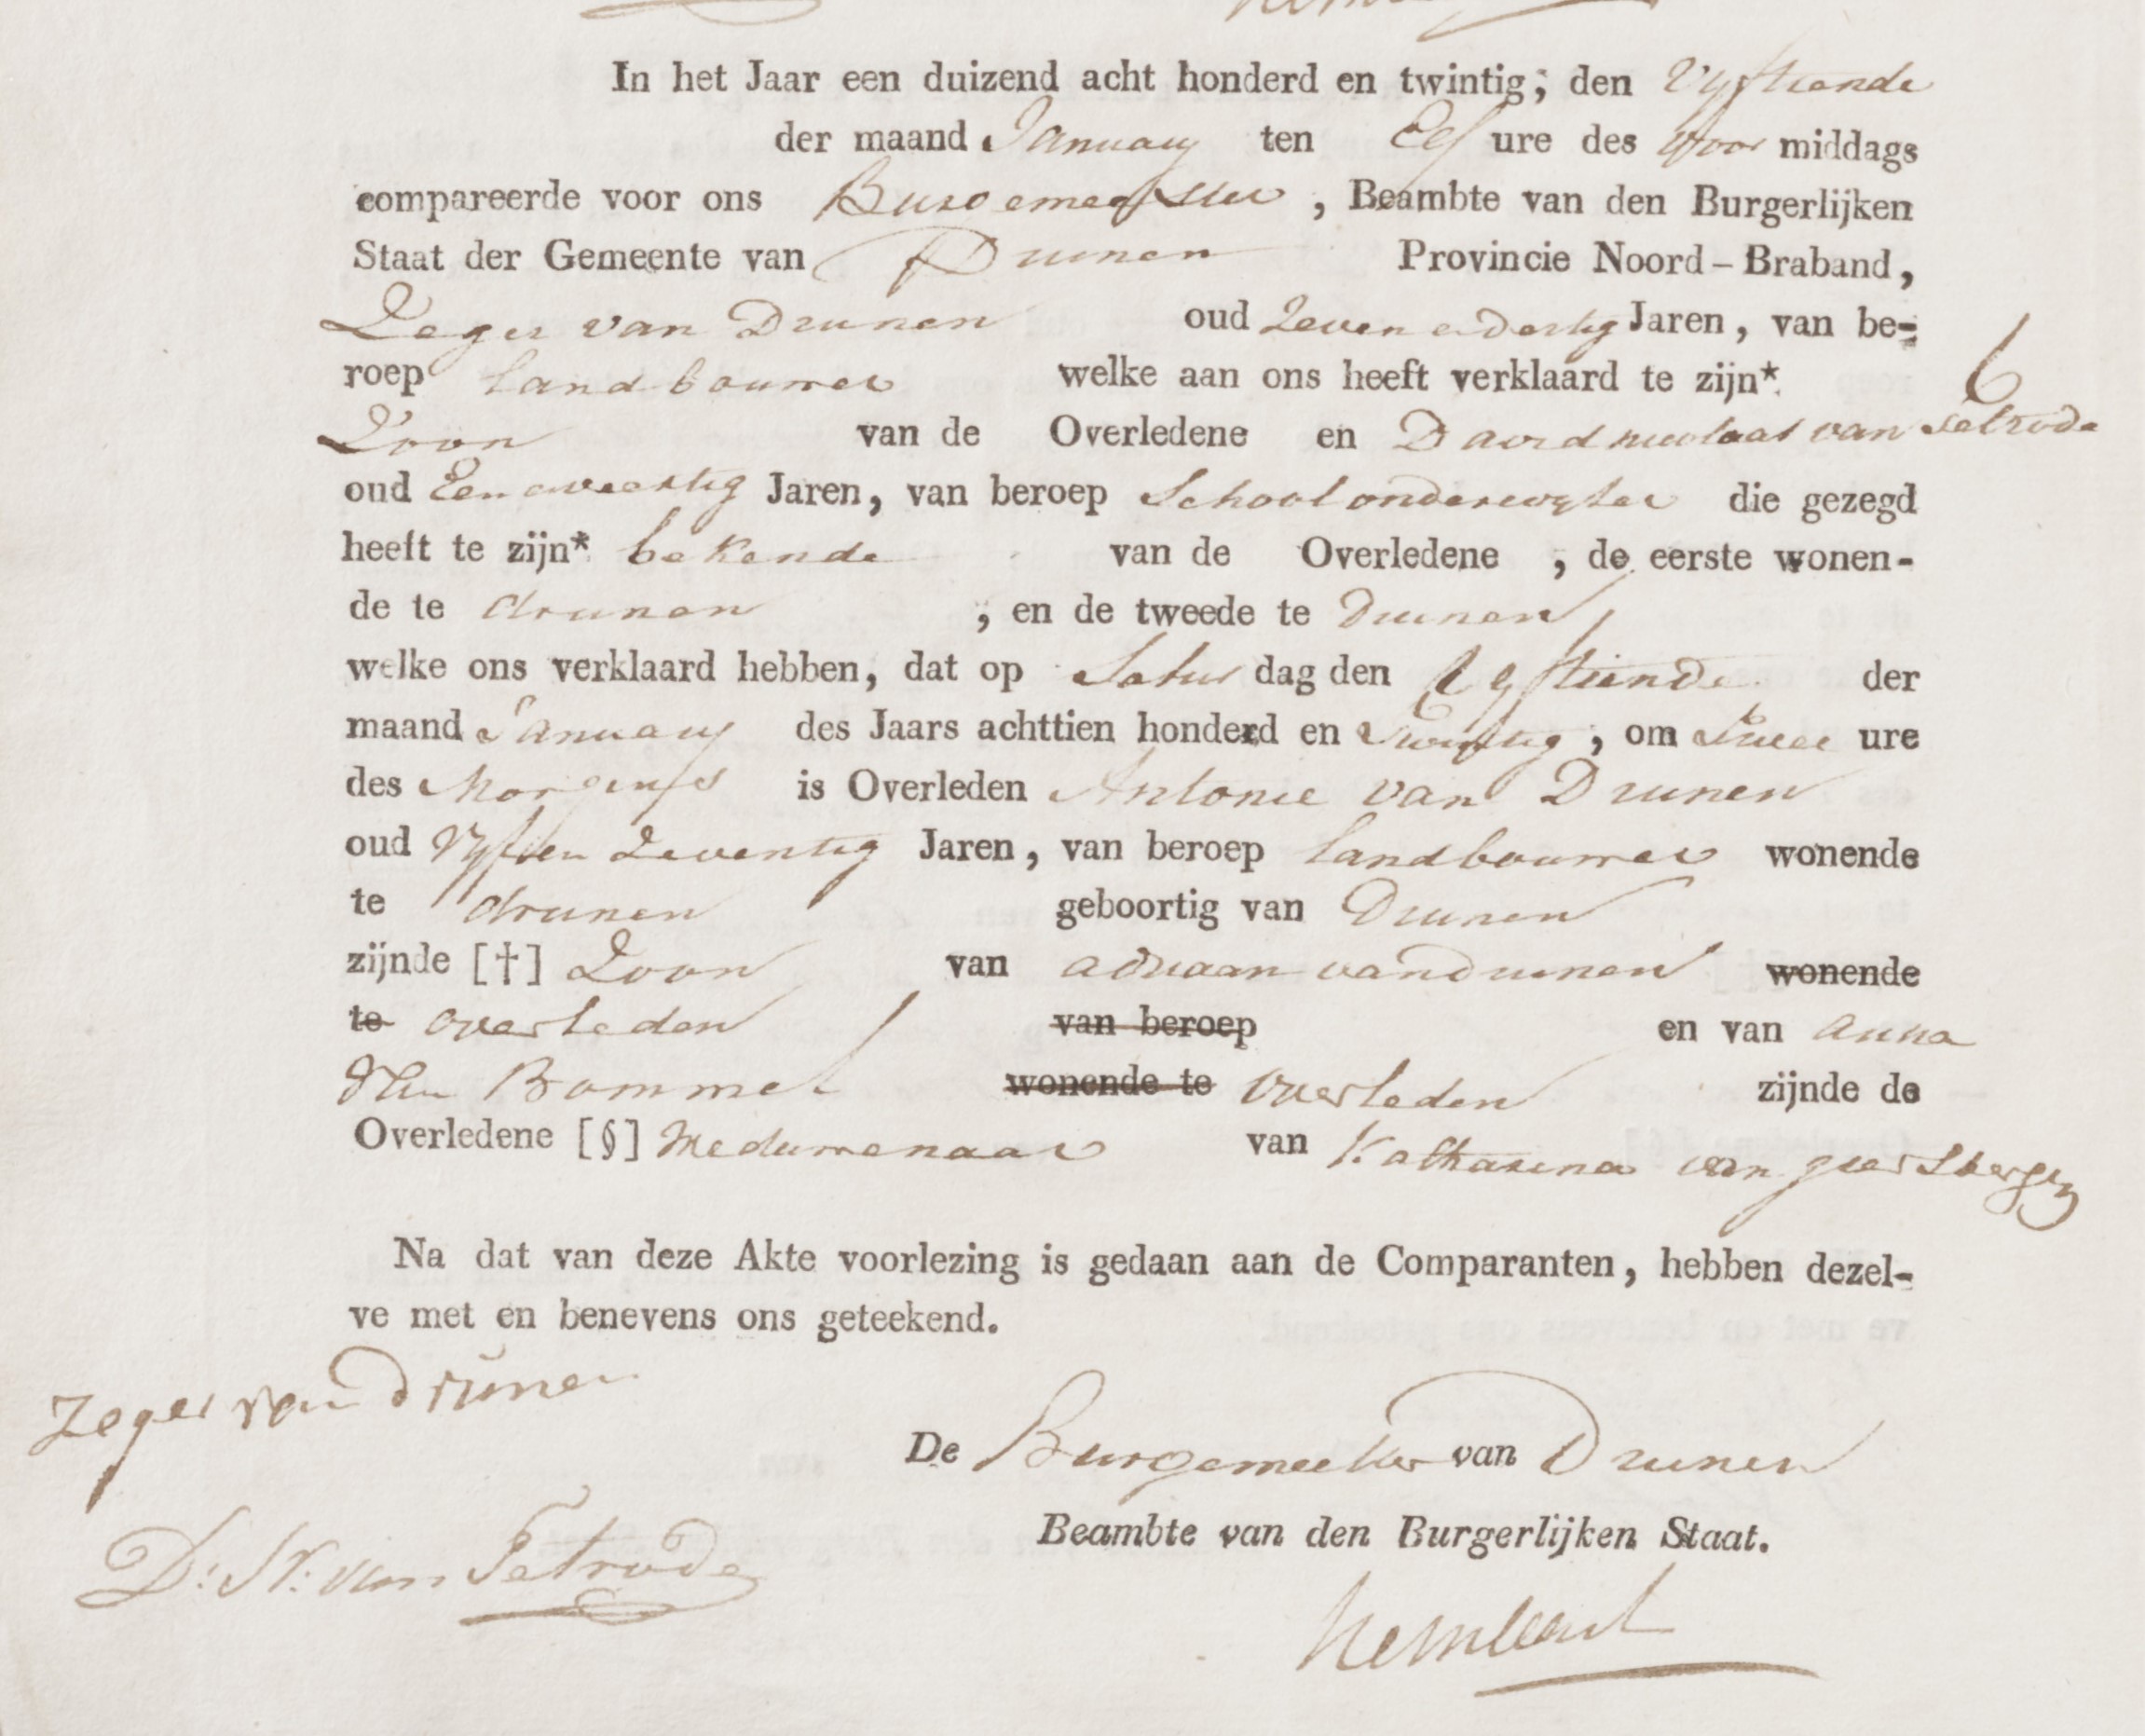 In het Jaar een duizend acht honderd en twintig; den Vyftiende
der maand January ten Elf ure des Voor middags
compareerde voor ons Burgemeester , Beambte van den Burgerlijken
Staat der Gemeente van Drunen Provincie Noord-Braband,
Zeger van Drunen oud Zeven en dertig Jaren, van be-
roep landbouwer welke aan ons heeft verklaard te zijn*
6
Zoon van de Overledene en David nicolaas van Tetrode
oud Een en veertig Jaren, van beroep Schoolonderwyser die gezegd
heeft te zijn* bekende van de Overledene , de eerste wonen-
de te drunen , en de tweede te Drunen
welke ons verklaard hebben, dat op Satur dag den Vyftiende der
maand January des Jaars achttien honderd en Twintig , om twee ure
des Morgens is Overleden Antonie van Drunen
oud Vyf en Zeventig Jaren, van beroep landbouwer wonende
te drunen geboortig van Drunen
zijnde [†] Zoon van adriaan van drunen wonende
te overleden van beroep en van anna
Van Bommel wonende te overleden zijnde de
Overledene [§] Weduwenaar van Katharina van geertsbergen
Na dat van deze Akte voorlezing is gedaan aan de Comparanten, hebben dezel-
ve met en benevens ons geteekend.
Zeger van drunen
De Burgemeester van Drunen
D: N: van Tetrode
Beambte van den Burgerlijken Staat.